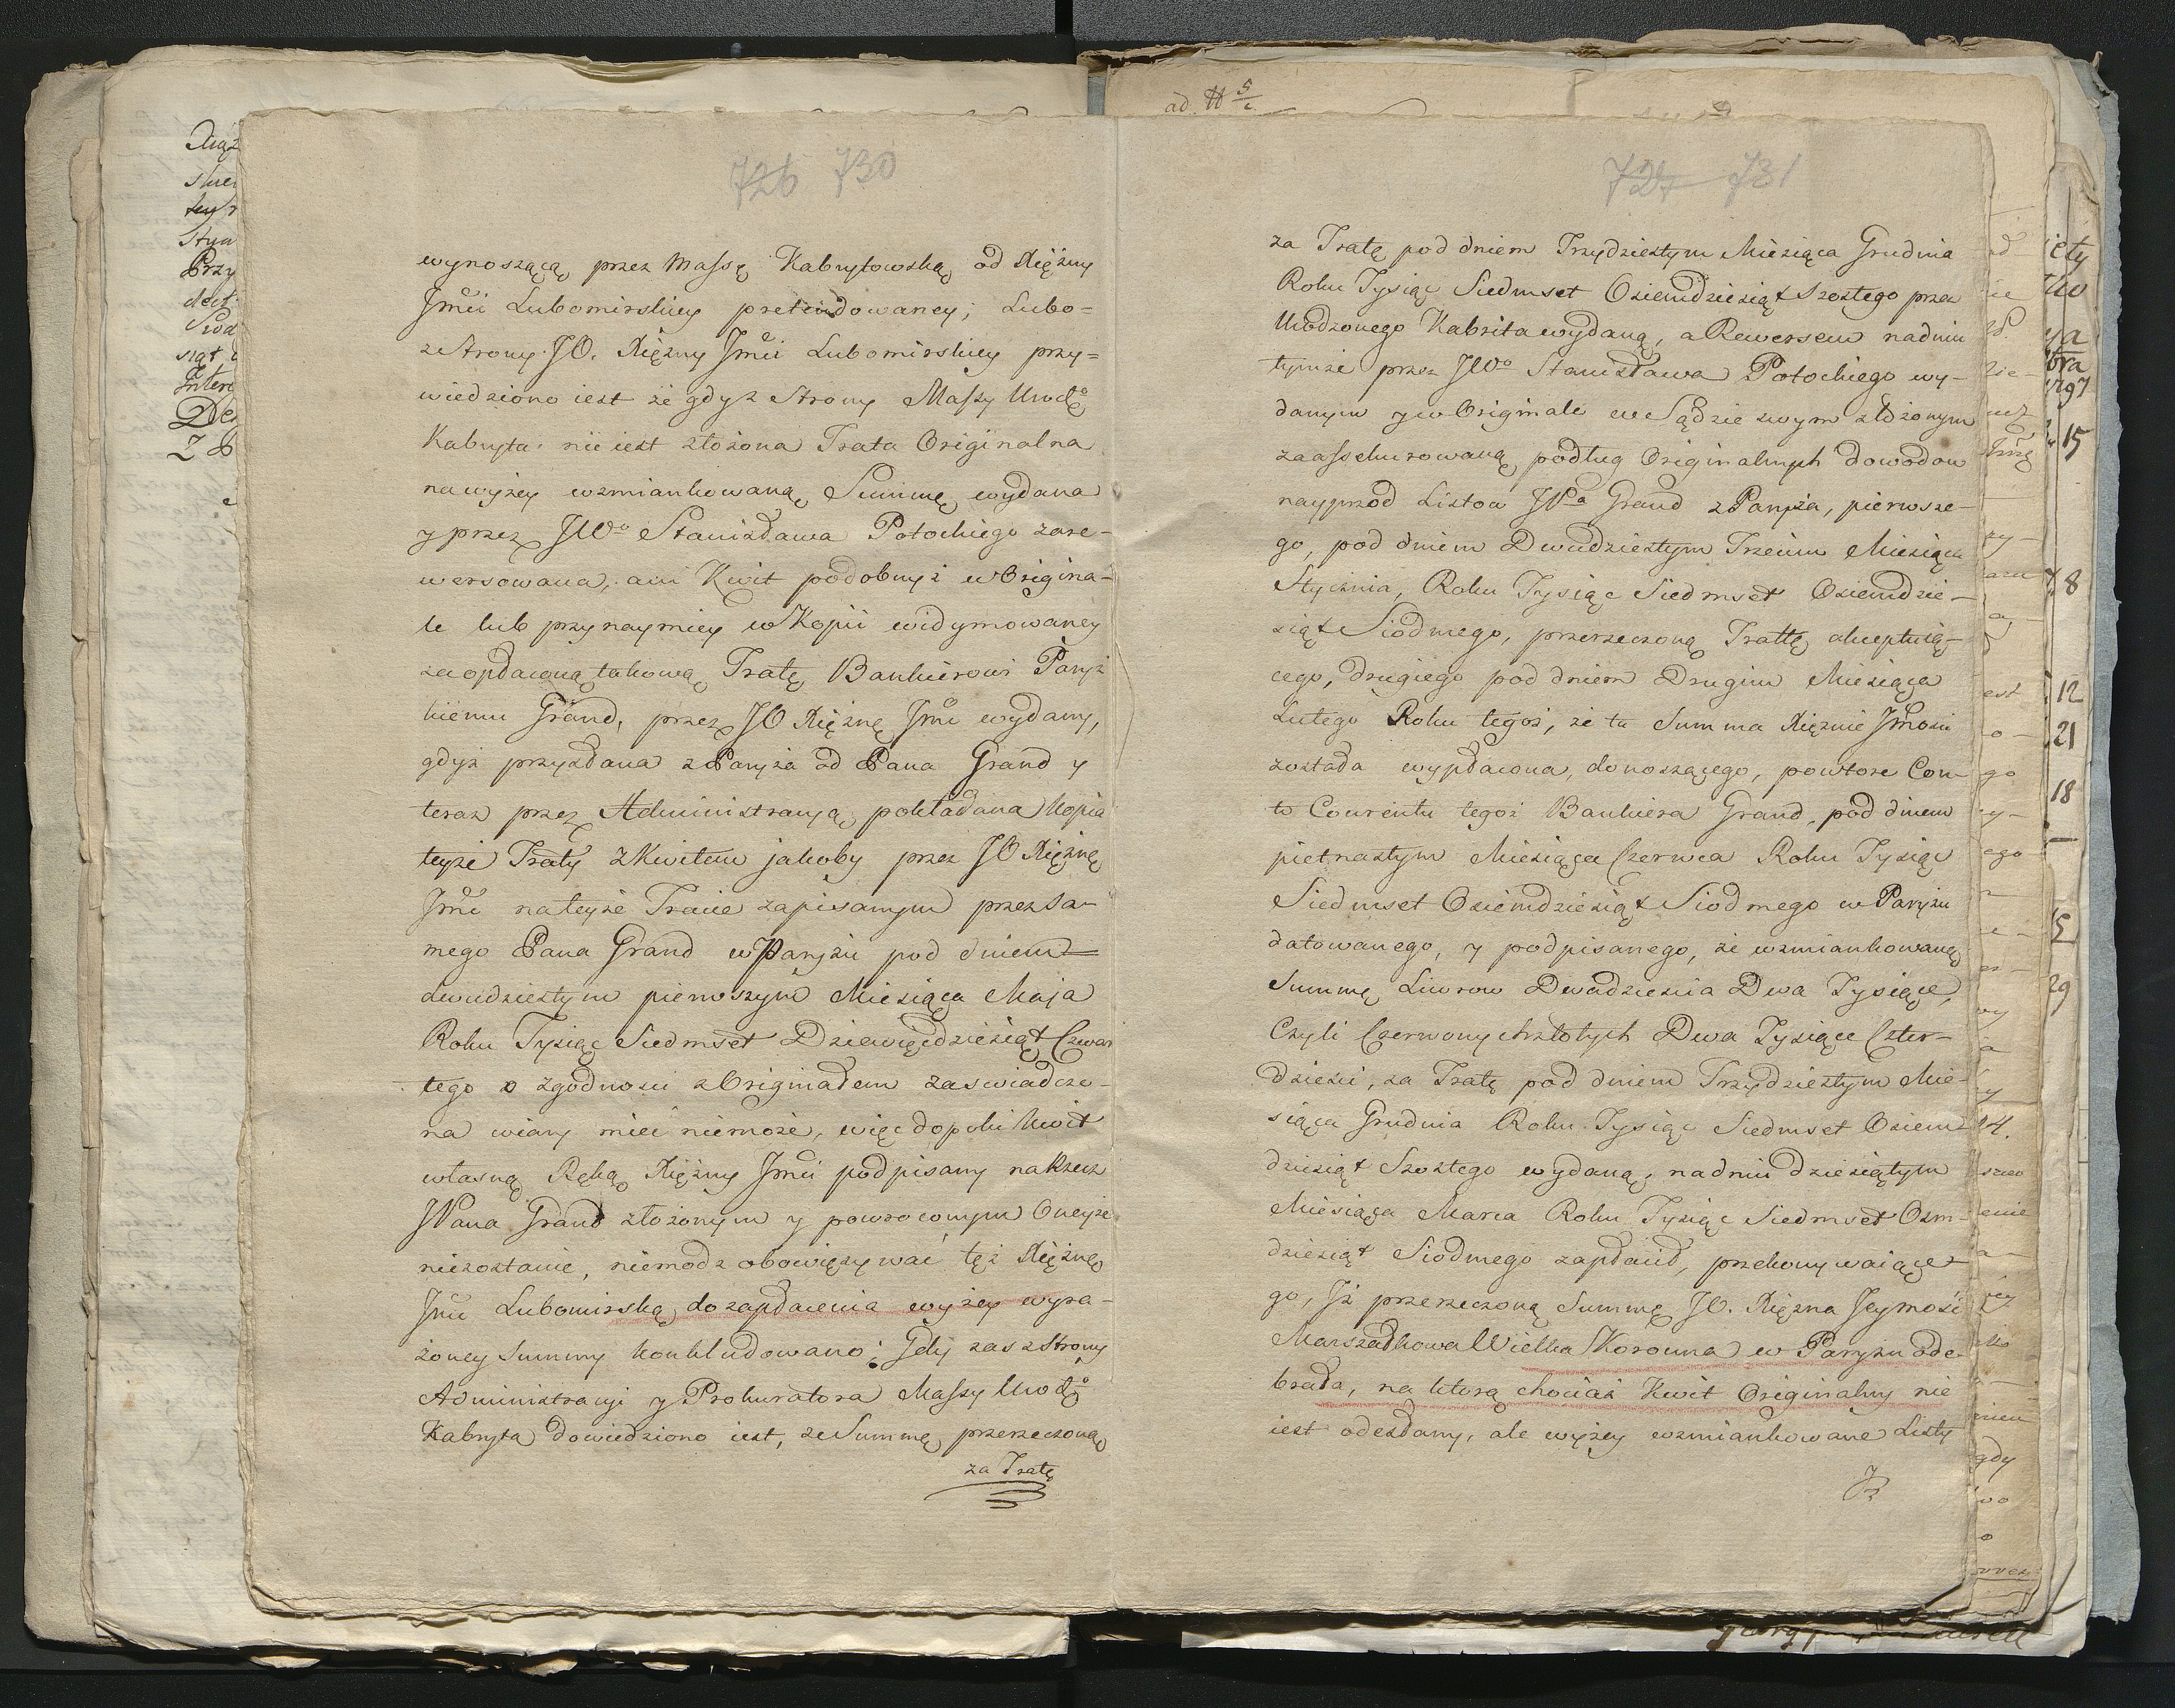 726 730
wynoszącą przez Massę Kabrytowską od Xiężny
Jmci Lubomirskiey pretendowaney; Lubo=
ze Strony JO. Xiężny Jmci Lubomirskiey przy=
wiedziono iest że gdy z Strony Massy Urodgo
Kabryta nie iest złożona Trata Originalna
na wyżey wzmiankowaną Summę wydana
y przez JWo Stanisława Potockiego zare-
wersowana, ani Kwit podobnyż w Origina-
le lub przynaymiey w Kopii widymowaney
za opłaconą takową Tratę Bankierowi Paryz
kiemu Grand, przez JO Xiężnę Jmć wydany,
gdyż przysłana z Paryża od Pana Grand y
teraz przez Administracyą pokładana Kopia
teyże Traty z Kwitem jakoby przez JO Xiężnę
Jmć na teyże Tracie zapisanym przez Sa-
mego Pana Grand w Paryżu pod dniem
dwudziestym pierwszym Miesiąca Maja
Roku Tysiąc Siedmset Dziewięćdziesiąt Czwar
tego o zgodności z Originałem zaświadczo-
na wiary mieć niemoże, więc dopoki kwit
własną Ręką Xiężny Jmci podpisany na Rzecz
JPana Grand złożonym y powroconym Oneyże
niezostanie, niemodz obowięzywać tęż Xiężnę
Jmć Lubomirską do zapłacenia wyżey wyra-
żoney Summy konkludowano; Gdy zas z Strony
Administracyi y Prokuratora Massy Urodgo
Kabryta dowiedziono iest, że Summę przerzeczoną
za Tratę
ad N 5/c
727 731
za Tratę pod dniem Trzydziestym Miesiąca Grudnia
Roku Tysiąc Siedmset Osiemdziesiąt Szostego przez
Urodzonego Kabrita wydaną, a Rewersem na dniu
tymże przez JWo Stanisława Potockiego wy-
danym y w Originale w Sądzie swym złożonym
zaassekurowaną podług Originalnych dowodow
nayprzod Listow JPa Grand z Paryża, pierwsze-
go, pod dniem Dwudziestym Trzecim Miesiąca
Stycznia, Roku Tysiąc Siedmset Osiemdzie-
siąt Siodmego, przerzeczoną Trattę akceptuią-
cego, drugiego pod dniem Drugim Miesiąca
Lutego Roku tegoż, że ta Summa Xiężnie Jmości
została wypłacona, donoszącego, powtore Con-
to Courentu tegoż Bankiera Grand, pod dniem
pietnastym Miesiąca Czerwca Roku Tysiąc
Siedmset Osiemdziesiąt Siodmego w Paryżu
datowanego, y podpisanego, że wzmiankowaną
Summę Liwrow Dwadzieścia Dwa Tysiące,
Czyli Czerwonych złotych Dwa Tysiące Czter-
dzieści, za Tratę pod dniem Trzydziestym Mie-
siąca Grudnia Roku Tysiąc Siedmset Osiem
dziesiąt Szostego wydaną, na dniu dziesiątym
Miesiąca Marca Roku Tysiąc Siedmset Osm-
dziesiąt Siodmego zapłacił, przekonywaiące-
go, Iż przerzeczoną Summę JO. Xiężna Jeymość
Marszałkowa Wielka Koronna w Paryżu ode-
brała, na którą chociaż Kwit Originalny nie
iest odesłany, ale wyżey wzmiankowane Listy